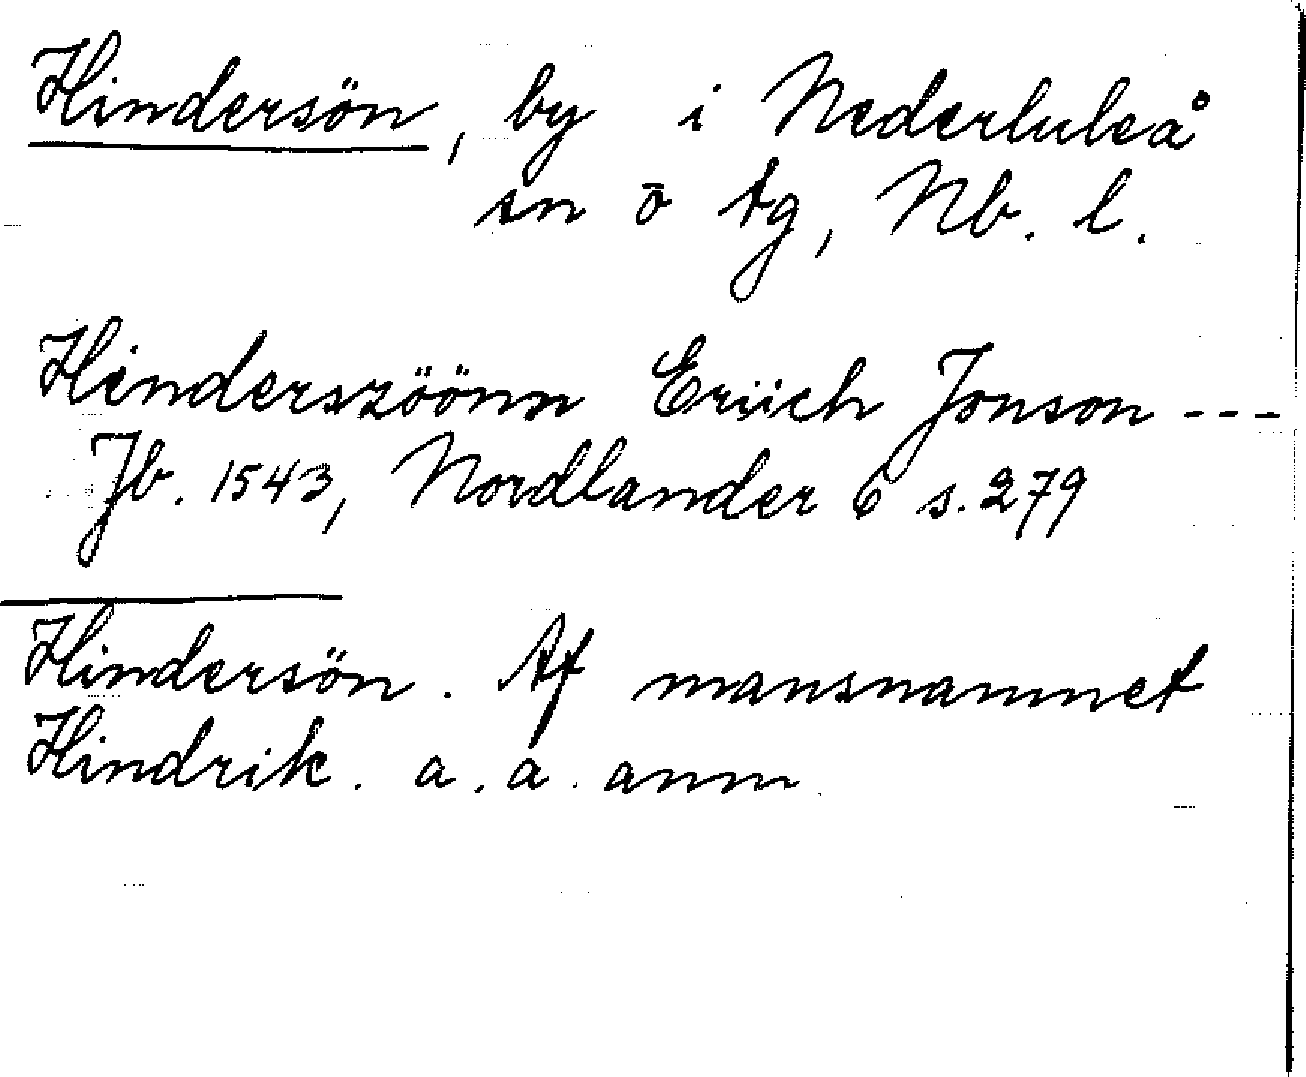 Hindersön, by i Nederluleå
sn o tg, Nb. l.
Hinderszöönn Eriich Jonson ---
Jb. 1543, Nordlander 6 s. 279
Hindersön. Af mansnamnet
Hindrik. a. a. anm